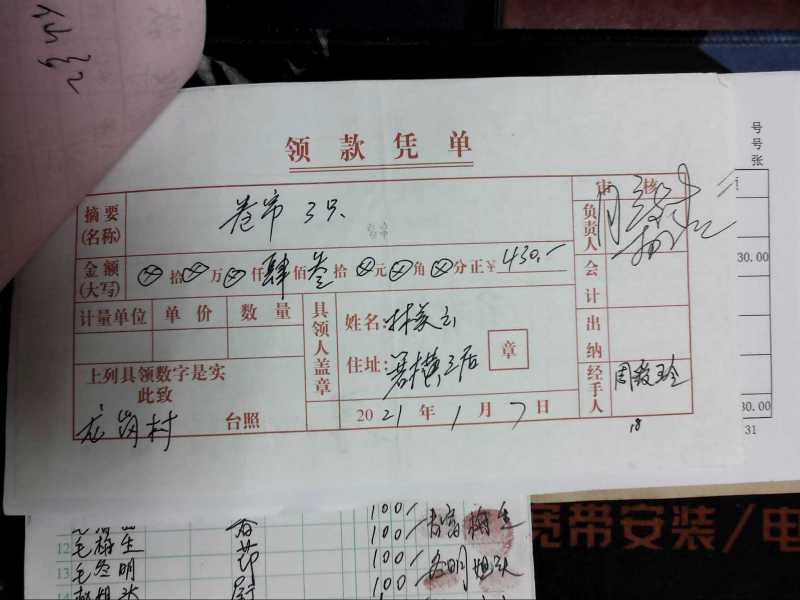 领款凭单
摘要(名称) 卷帘 3只
金额(大写) ⊗拾⊗万⊗仟肆佰叁拾⊗元⊗角⊗分正¥430.-
计量单位 单价 数量
具领人盖章
姓名:林美玉
住址:箬横三居
章
上列具领数字是实
此致
龙岗村 台照
2021年1月7日
审核
负责人
会计
出纳
经手人 周 玲
18
号
号
张
30.00
30.00
31
100/-
12 毛梅生 100/- 梅生
13 毛冬明 100/- 明
14 100/-
宽带安装/电